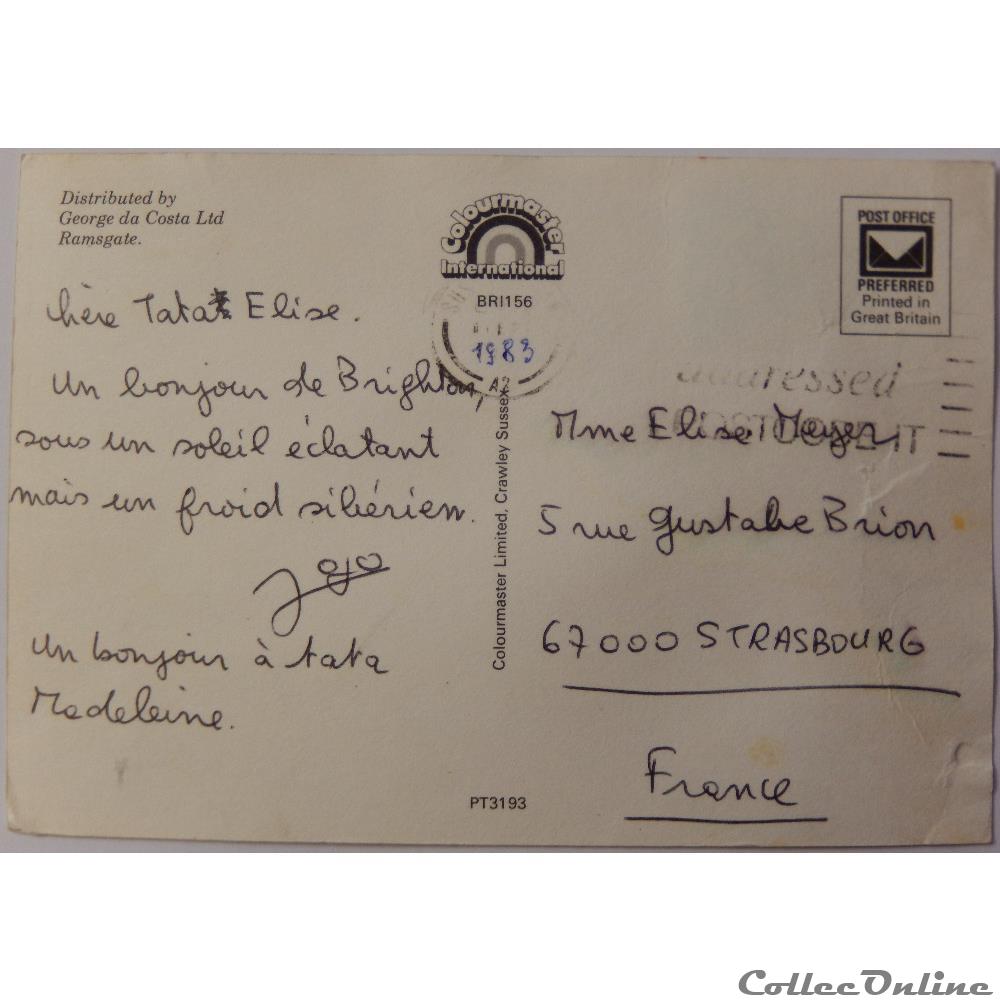 Distributed by
George da Costa Ltd
Ramsgate.
Chère Tata Elise.
Un bonjour de Brighton,
sous un soleil éclatant
mais un froid sibérien.
Jojo
un bonjour à tata
Madeleine.
Colourmaster
International
BRI156
1983
A2
Colourmaster Limited, Crawley Sussex
PT3193
POST OFFICE
PREFERRED
Printed in
Great Britain
addressed
Mme Elise Meyer
5 rue Gustabe Brion
67000 STRASBOURG
France
CollecOnline